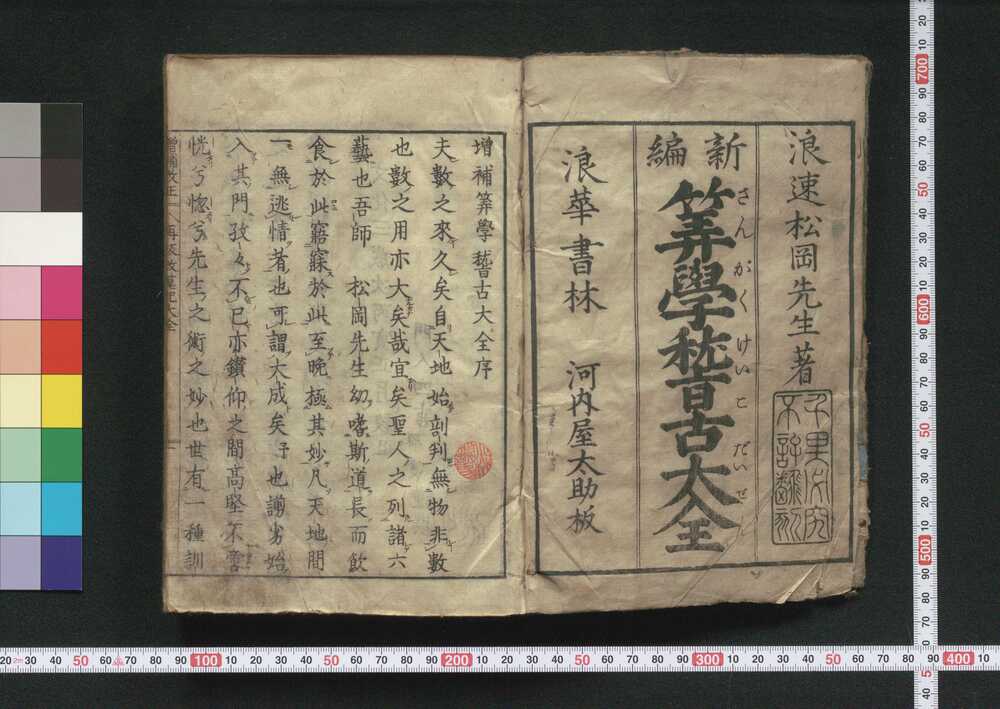 浪速松岡先生著
千里必究
不許翻刻
新編
筭學稽古大全
さんがくけいこだいぜん
浪華書林 河内屋太助板
増補筭學稽古大全序
夫數之來久矣自天地始剖判無物非數
也數之用亦大矣哉宜矣聖人之列諸六
藝也吾師 松岡先生幼嗜斯道長而飲
食於此寤寐於此至晩極其妙凡天地間
一無逃情者也可謂大成矣予也謭劣始
入其門孜々不已亦鑚仰之間高堅不
恍兮惚兮先生之術之妙也世有一種訓